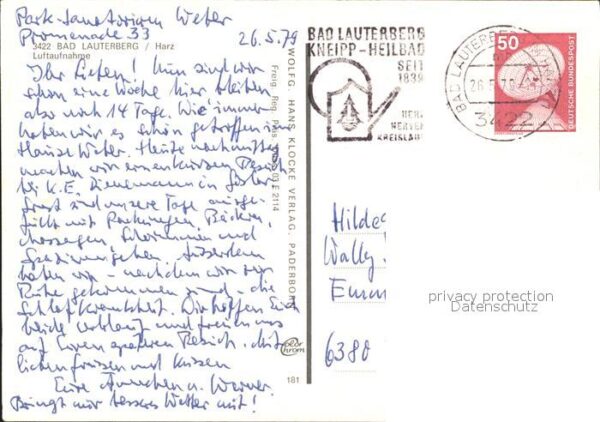 Park-Sanatorium Weber
Promenade 33
26.5.79
3422 BAD LAUTERBERG / Harz
Luftaufnahme
Ihr Lieben! Nun sind wir
schon eine Woche hier bleiben
also noch 14 Tage. Wie immer
haben wir es schön getroffen im
Hause Weber. Heute nachmittag
machen wir einen kurzen Besuch
bei K.E. Dienemann in
sind unsere Tage ausge-
füllt mit Packungen, Bädern,
Massagen, Schwimmen und
Spazierengehen. Ausserdem
haben wir - nachdem wir zur
Ruhe gekommen sind - die
Schlafkrankheit. Wir hoffen Euch
beide und freuen uns
auf Euren späteren Besuch. Mit
lieben Grüssen und Küssen
Eure Ännchen u. Werner.
Bringt nur besseres Wetter mit!
WOLFG. HANS KLOCKE VERLAG, PADERBORN
Freig. Reg. Präs. E 2114
color
chrom
181
BAD LAUTERBERG
KNEIPP-HEILBAD
SEIT
1839
HERZ
NERVEN
KREISLAUF
BAD LAUTERBERG
26.5.79
3422
50
DEUTSCHE BUNDESPOST
Hilde
Wally
Emm
6380
privacy protection
Datenschutz